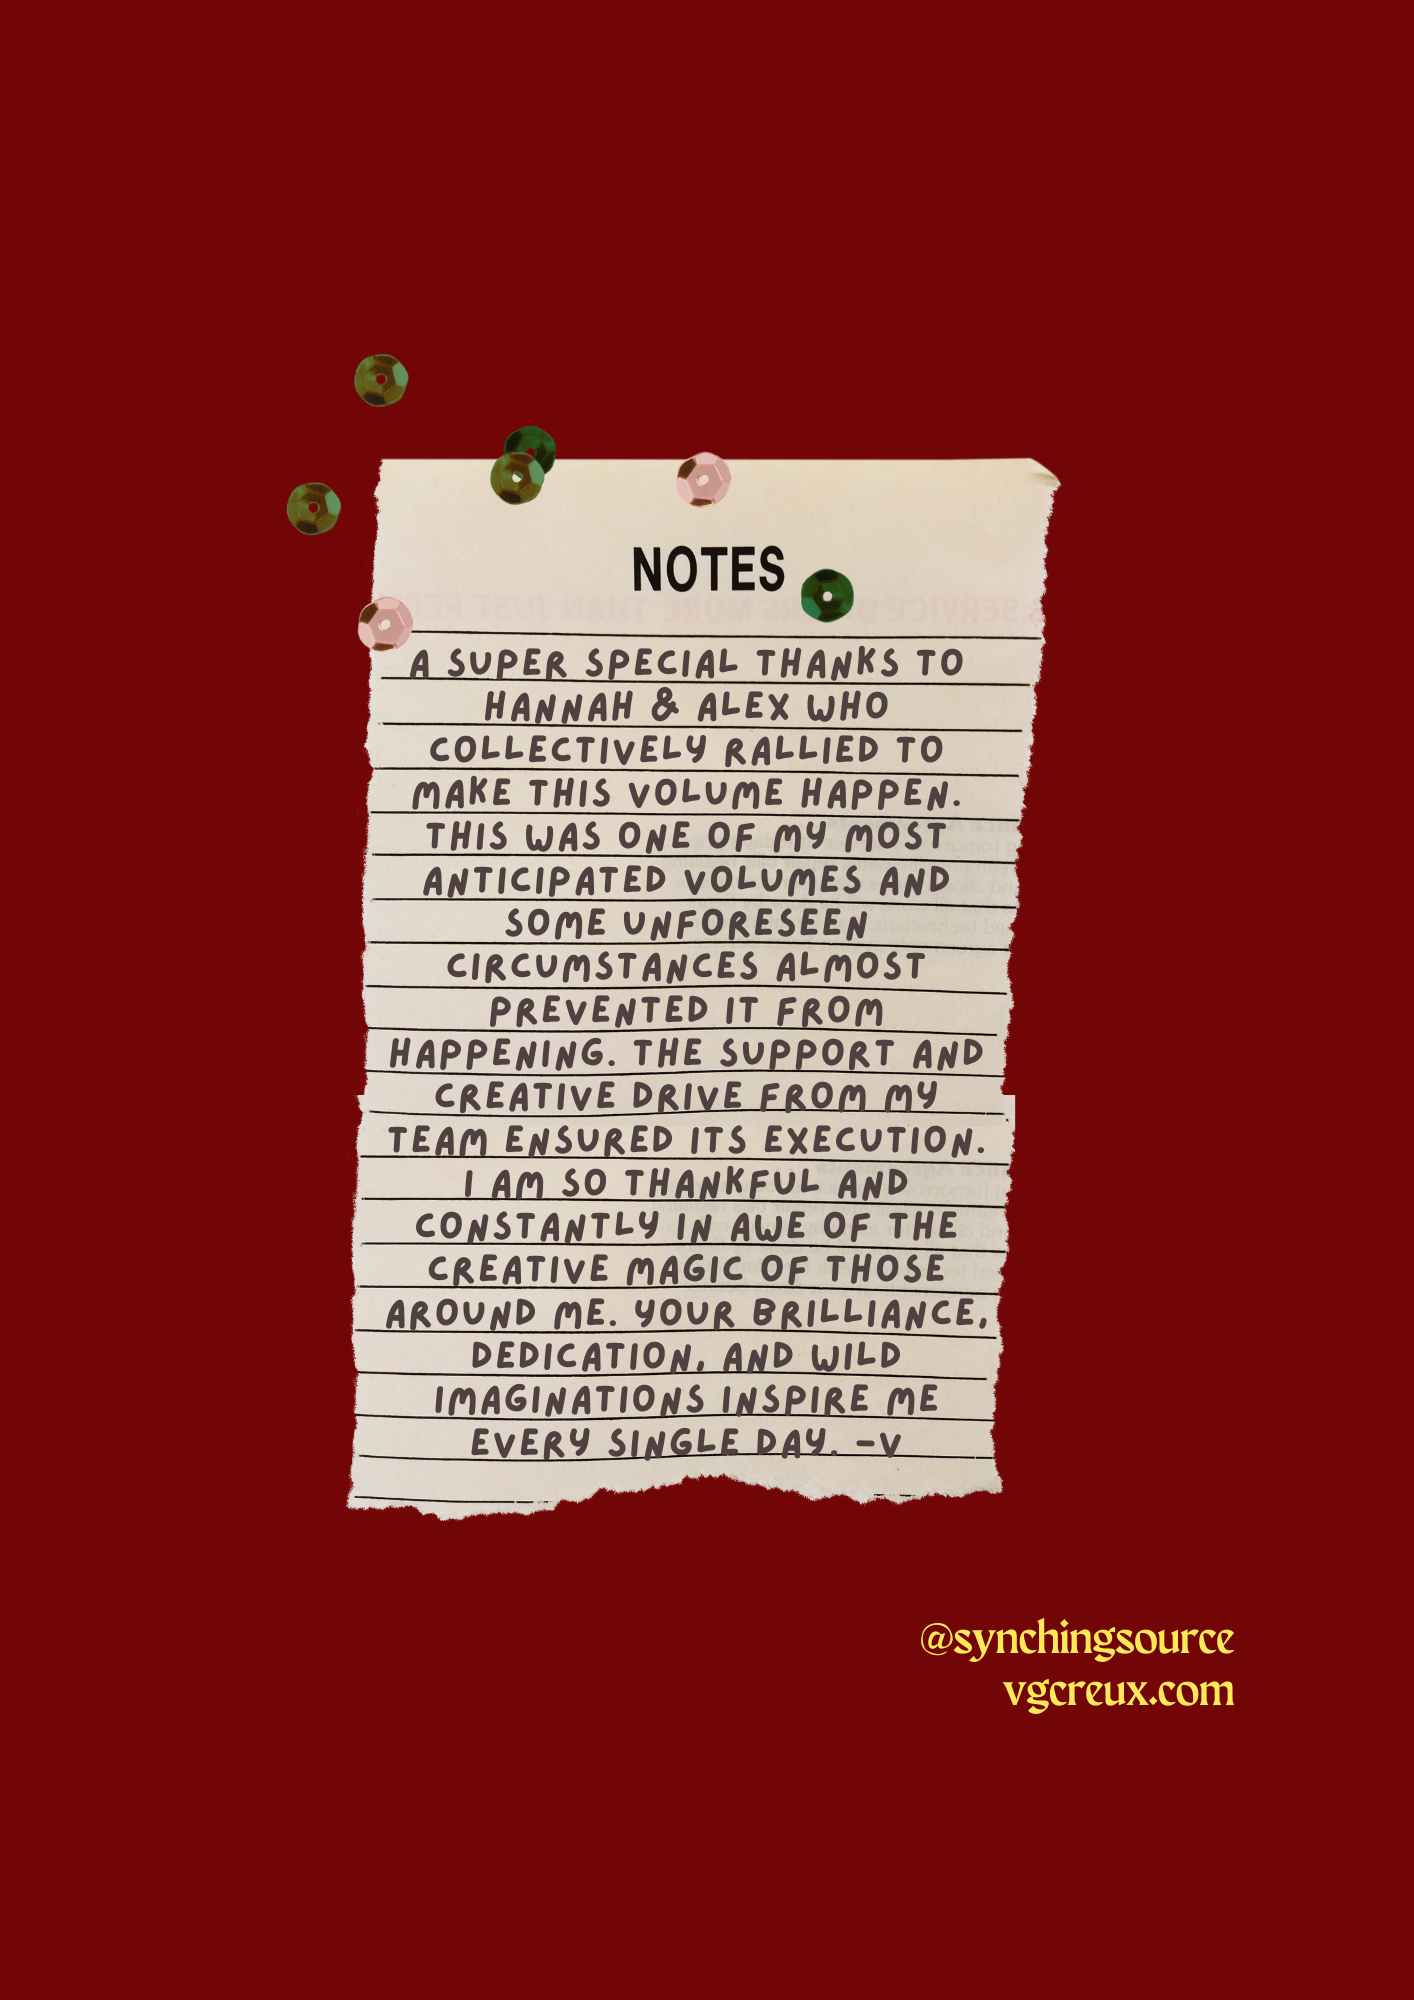 NOTES
A SUPER SPECIAL THANKS TO
HANNAH & ALEX WHO
COLLECTIVELY RALLIED TO
MAKE THIS VOLUME HAPPEN.
THIS WAS ONE OF MY MOST
ANTICIPATED VOLUMES AND
SOME UNFORESEEN
CIRCUMSTANCES ALMOST
PREVENTED IT FROM
HAPPENING. THE SUPPORT AND
CREATIVE DRIVE FROM MY
TEAM ENSURED ITS EXECUTION.
I AM SO THANKFUL AND
CONSTANTLY IN AWE OF THE
CREATIVE MAGIC OF THOSE
AROUND ME. YOUR BRILLIANCE,
DEDICATION, AND WILD
IMAGINATIONS INSPIRE ME
EVERY SINGLE DAY. -V
@synchingsource
vgcreux.com